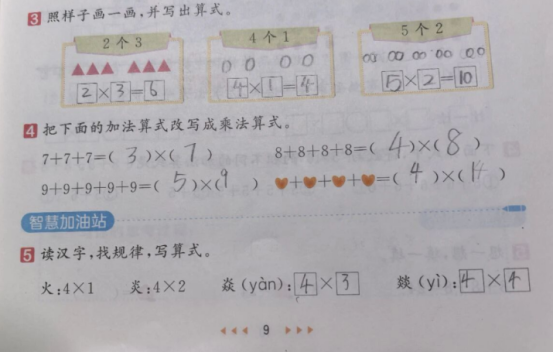 3 照样子画一画,并写出算式。
2个3 4个1 5个2
2×3=6 4×1=4 5×2=10
4 把下面的加法算式改写成乘法算式。
7+7+7=( 3 )×( 7 ) 8+8+8+8=( 4 )×( 8 )
9+9+9+9+9=( 5 )×( 9 ) ♥+♥+♥+♥=( 4 )×( )
智慧加油站
5 读汉字,找规律,写算式。
火:4×1 炎:4×2 焱(yàn):4×3 燚(yì):4×4
9